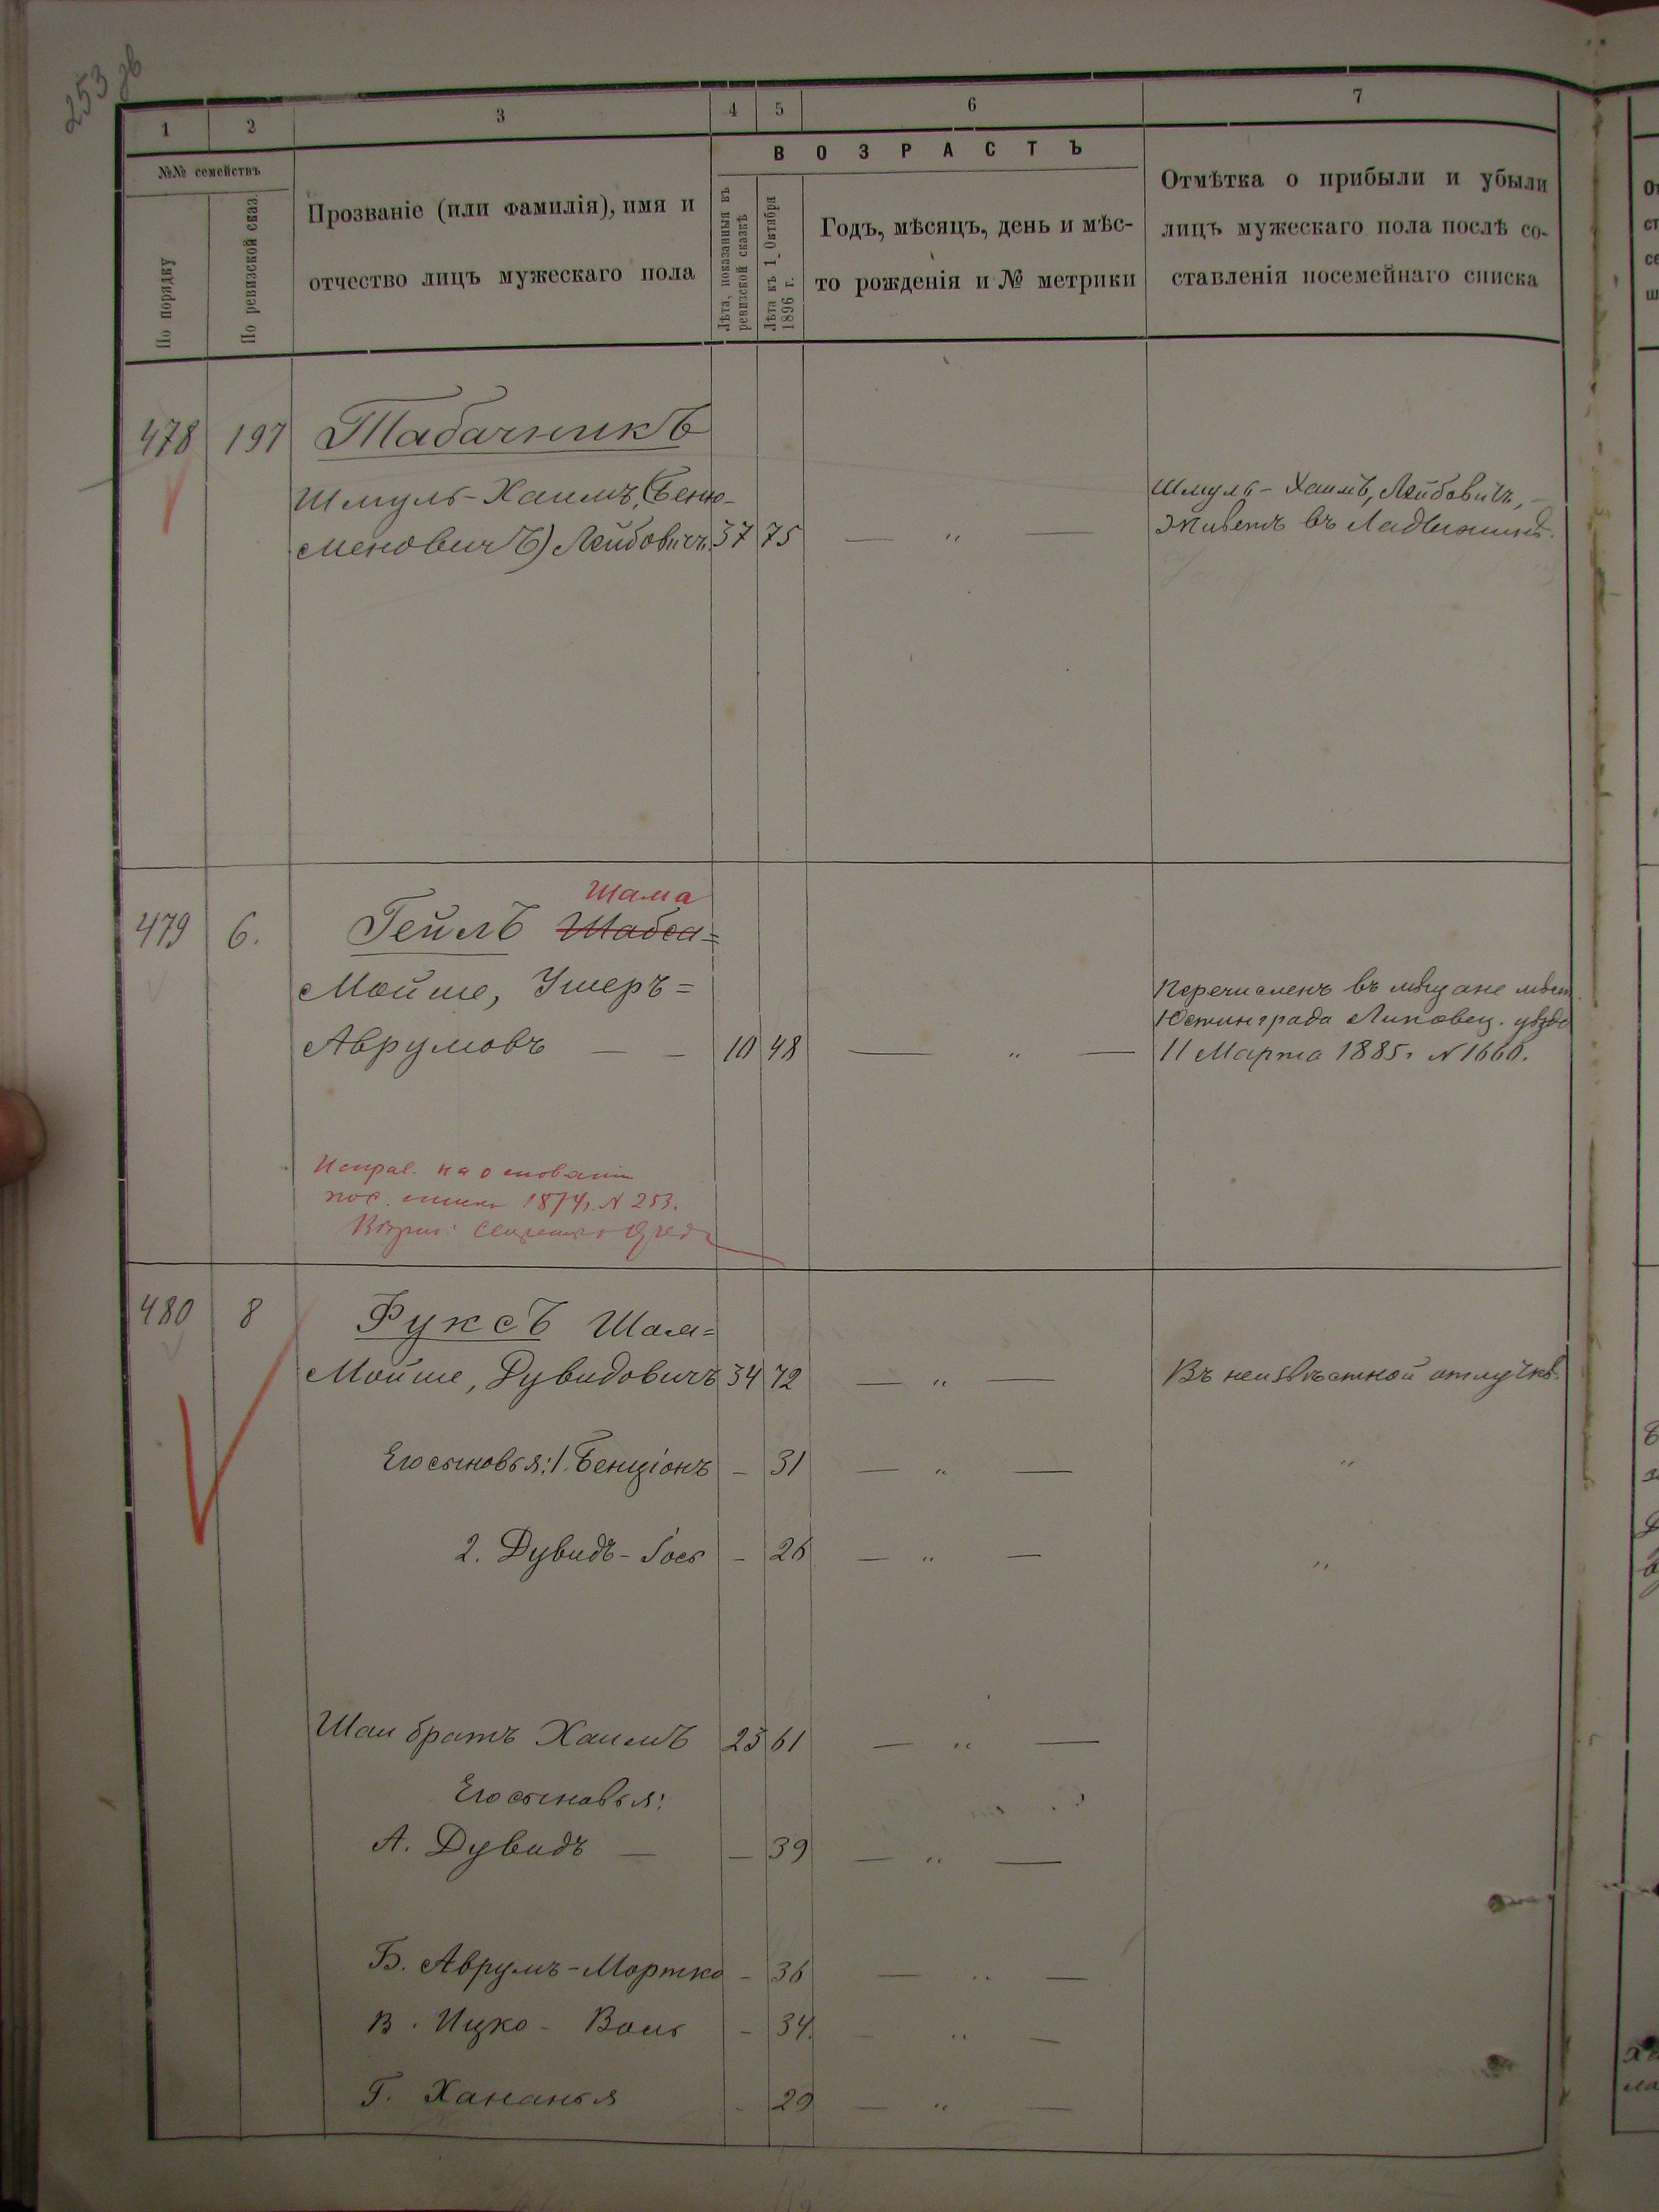 253 зв
1 2 3 4 5 6 7
№№ семействъ
По порядку
По ревизской сказ.
Прозваніе (или фамилія), имя и
отчество лицъ мужескаго пола
ВОЗРАСТЪ
Лѣта, показанныя въ
ревизской сказкѣ
Лѣта къ 1 Октября
1896 г.
Годъ, мѣсяцъ, день и мѣс-
то рожденія и № метрики
Отмѣтка о прибыли и убыли
лицъ мужескаго пола послѣ со-
ставленія посемейнаго списка
478 197 Табачникъ
Шмуль-Хаимъ, (Беню- Шмуль-Хаимъ, Лейбовичъ,
меновичъ) Лейбовичъ 37 75 — „ — живетъ въ
Шама
479 6. Гейлъ Шабса=
Мойше, Ушеръ= Перечисленъ въ мѣщане мѣст.
Юстинграда Липовец. уѣзда
Аврумовъ — — 10 48 — „ — 11 Марта 1885 г. № 1660.
Исправ. на основаніи
пос. списка 1874 г. № 253.
480 8 Фуксъ Шам=
Мойше, Дувидовичъ 34 72 — „ — Въ неизвѣстной отлучкѣ.
Его сыновья: 1. Бенціонъ – 31 — „ — „
2. Дувидъ-Іось – 26 — „ — „
Шаи братъ Хаимъ 23 61 — „ —
Его сыновья:
А. Дувидъ — — 39 — „ —
Б. Аврумъ-Мортко – 36 — „ —
В. Ицко- Воль – 34. – „ —
Г. Хананья - 29 — „ —